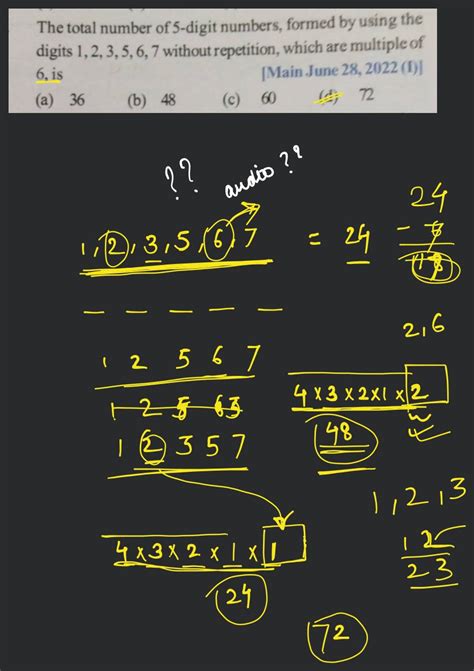 The total number of 5-digit numbers, formed by using the
digits 1, 2, 3, 5, 6, 7 without repetition, which are multiple of
6, is [Main June 28, 2022 (I)]
(a) 36 (b) 48 (c) 60 (d) 72
?? audio ??
1, 2, 3, 5, 6, 7 = 24
24
2, 6
1 2 5 6 7
4 × 3 × 2 × 1 × 2
48
1 2 3 5 7
1, 2, 3
12
23
4 × 3 × 2 × 1 × 1
24
72